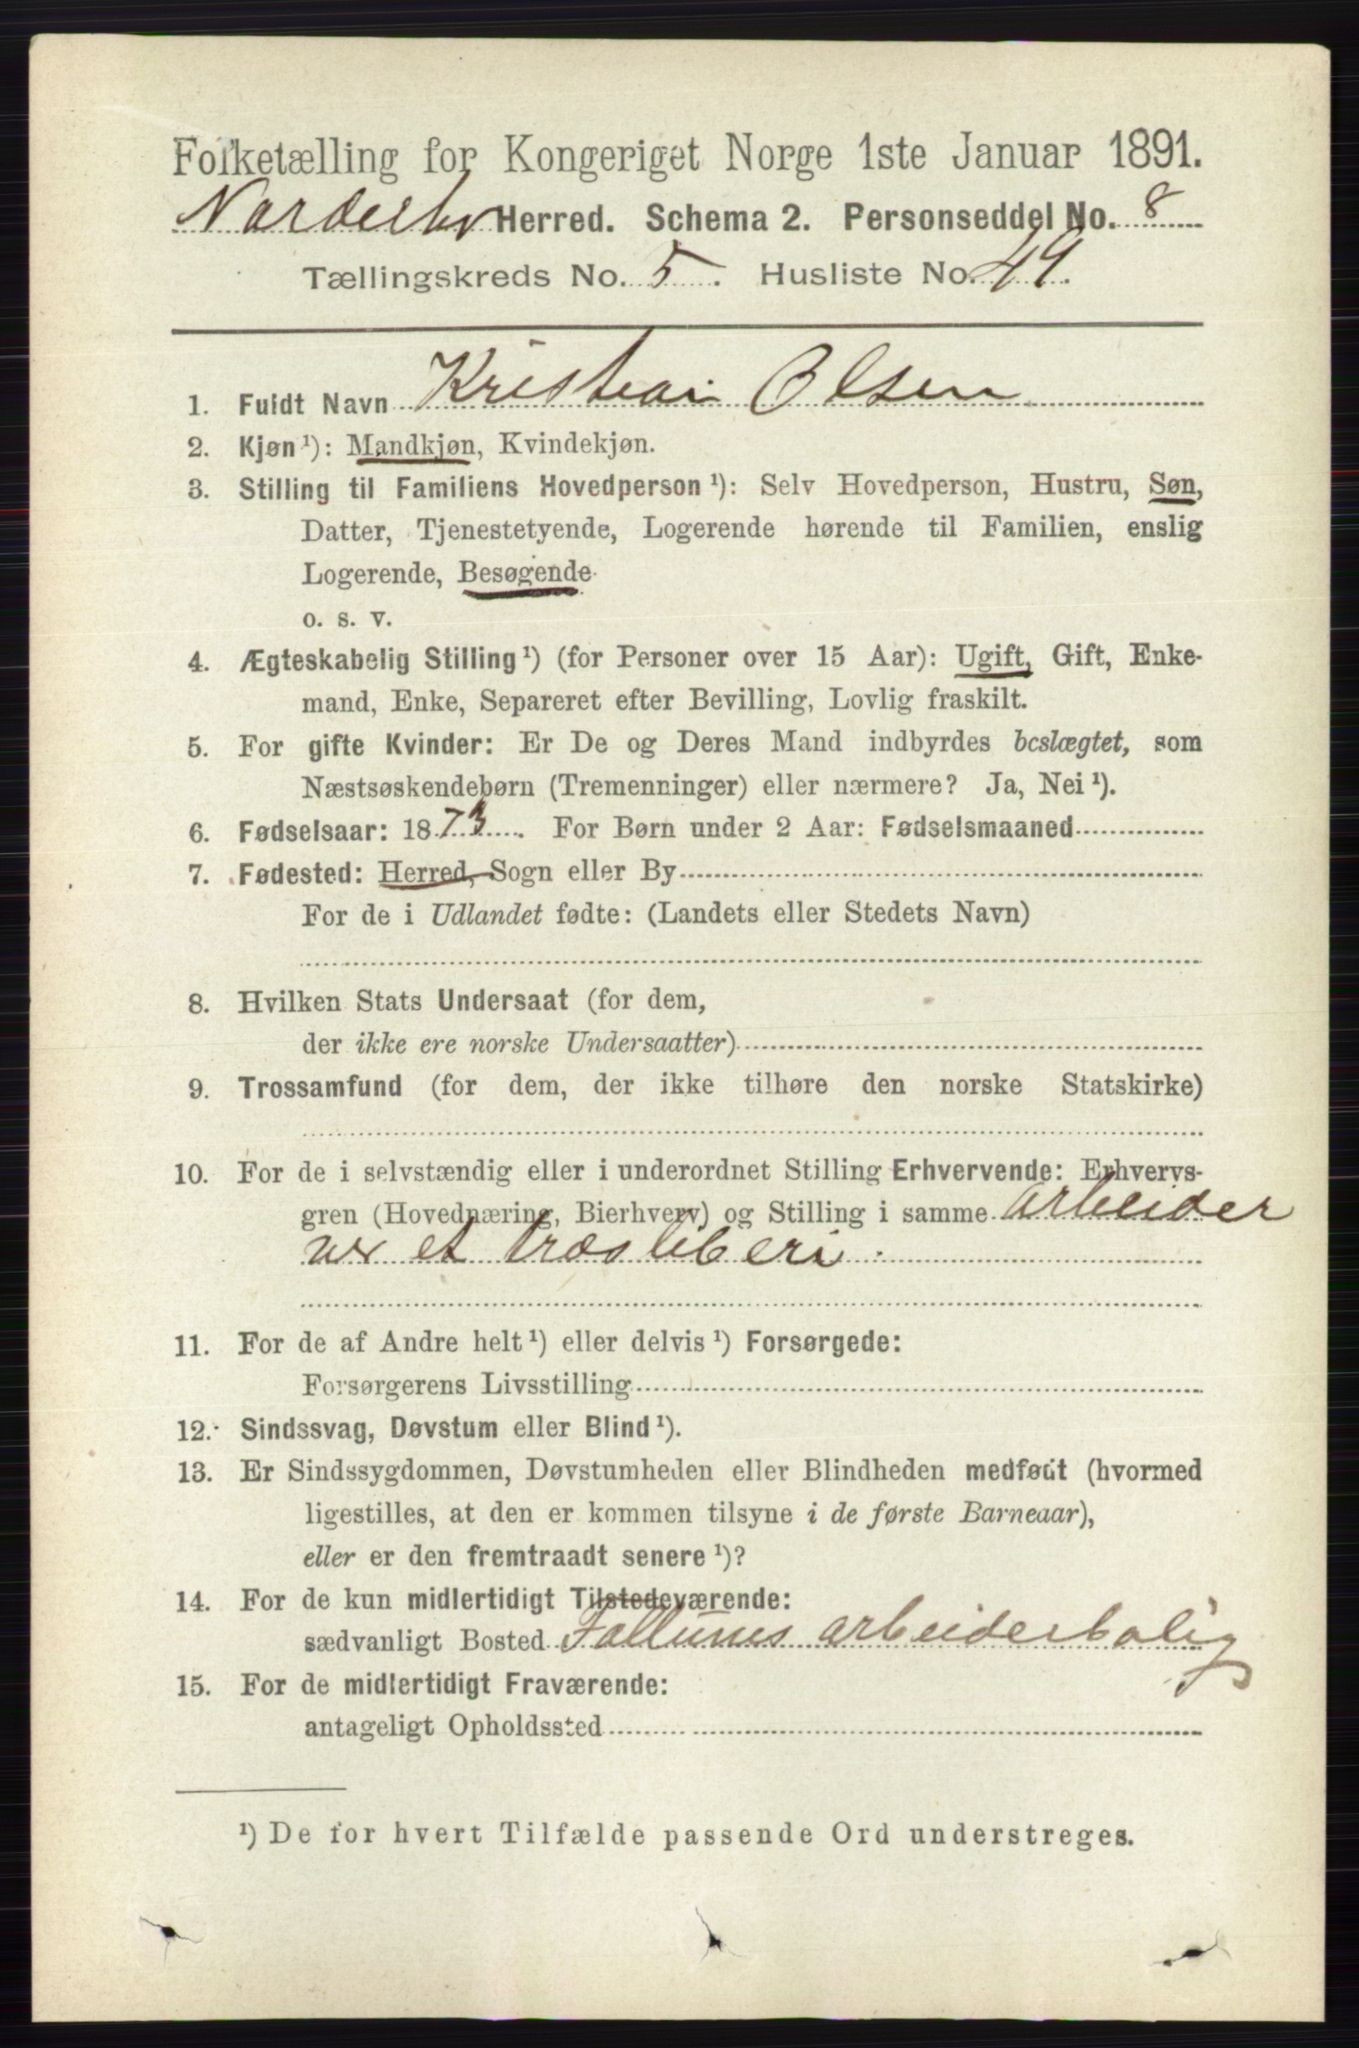 Folketælling for Kongeriget Norge 1ste Januar 1891.
Norderhov Herred. Schema 2. Personseddel No. 8
Tællingskreds No. 5. Husliste No. 49.
1. Fuldt Navn Kristian Olsen
2. Kjøn¹): Mandkjøn, Kvindekjøn.
3. Stilling til Familiens Hovedperson¹): Selv Hovedperson, Hustru, Søn,
Datter, Tjenestetyende, Logerende hørende til Familien, enslig
Logerende, Besøgende
o. s. v.
4. Ægteskabelig Stilling¹) (for Personer over 15 Aar): Ugift, Gift, Enke-
mand, Enke, Separeret efter Bevilling, Lovlig fraskilt.
5. For gifte Kvinder: Er De og Deres Mand indbyrdes beslægtet, som
Næstsøskendebørn (Tremenninger) eller nærmere? Ja, Nei¹).
6. Fødselsaar: 1873. For Børn under 2 Aar: Fødselsmaaned
7. Fødested: Herred, Sogn eller By
For de i Udlandet fødte: (Landets eller Stedets Navn)
8. Hvilken Stats Undersaat (for dem,
der ikke ere norske Undersaatter)
9. Trossamfund (for dem, der ikke tilhøre den norske Statskirke)
10. For de i selvstændig eller i underordnet Stilling Erhvervende: Erhvervs-
gren (Hovednæring, Bierhverv) og Stilling i samme arbeider
ve et træsliberi.
11. For de af Andre helt¹) eller delvis¹) Forsørgede:
Forsørgerens Livsstilling
12. Sindssvag, Døvstum eller Blind¹).
13. Er Sindssygdommen, Døvstumheden eller Blindheden medfødt (hvormed
ligestilles, at den er kommen tilsyne i de første Barneaar),
eller er den fremtraadt senere¹)?
14. For de kun midlertidigt Tilstedeværende:
sædvanligt Bosted arbeiderbolig
15. For de midlertidigt Fraværende:
antageligt Opholdssted
¹) De for hvert Tilfælde passende Ord understreges.